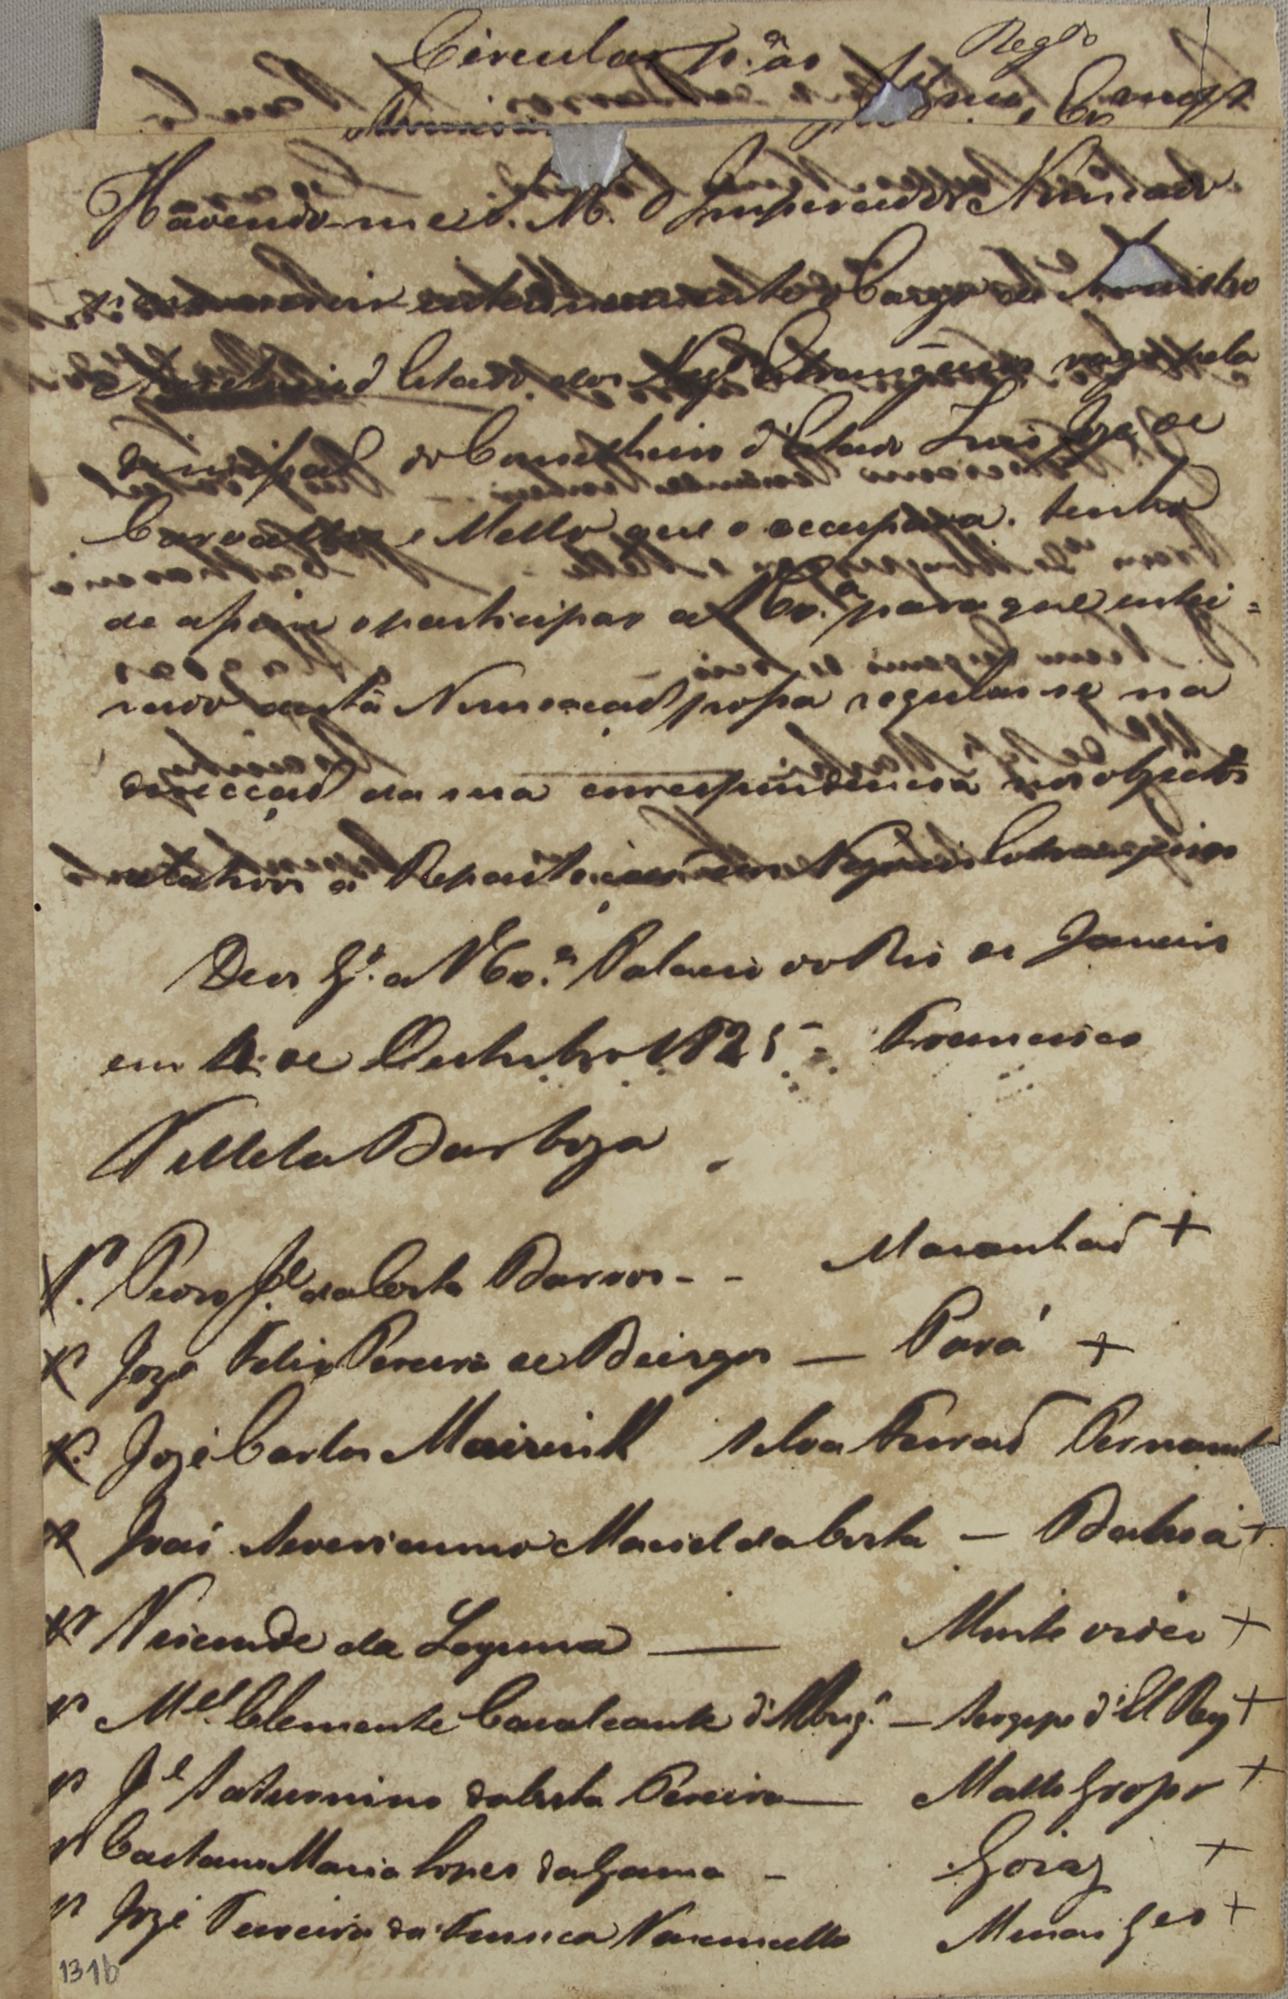 Circular p.ª as
Reg.do
Havendo-me S. M. O Imperador Numeado
p.ª exercer interinamente o Cargo de Ministro
e Secretario d'Estado dos Neg.os Estrangeiros vago pela
demissaõ do Conselheiro d'Estado Luis Joze de
Carvalho e Mello que o occupava. tenho
de assim o participar a V Ex.ª para que intei=
rado desta Numeacaõ possa regular-se na
direccaõ da sua correspondencia nos objectos
relativos a Reparticaõ dos Negocios Estrangeiros
Deos G.e a V Ex.ª Palacio do Rio de Janeiro
em 4 de Outubro 1825 = Francisco
Villela Barboza
Sr. Pedro J.e da Costa Barros - - Maranhaõ +
Sr Joze Felix Pereira de Burgos — Pará +
Sr. Jozé Carlos Mairink Silva Ferraõ Pernamb
Sr Joaõ Severianno Maciel da Costa — Bahia +
Sr Visconde da Laguna — Monte video +
Sr M.el Clemente Cavalcante d'Albuq.e — Sergipe d'El Rey +
Sr J.e Saturnino da Costa Pereira — Matto Grosso +
Sr Caetano Maria Lopes da Gama - Goiaz +
Sr Jozé Teixeira da Fonseca Vasconcellos Minas Ges +
1316